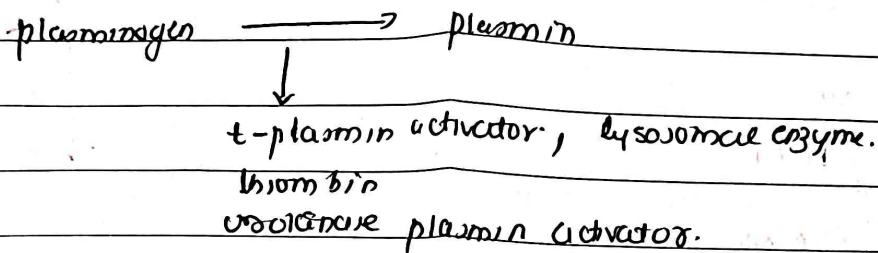 plasminogen → plasmin
t-plasmin activator., lysosomal enzyme.
thrombin
urokinase plasmin activator.